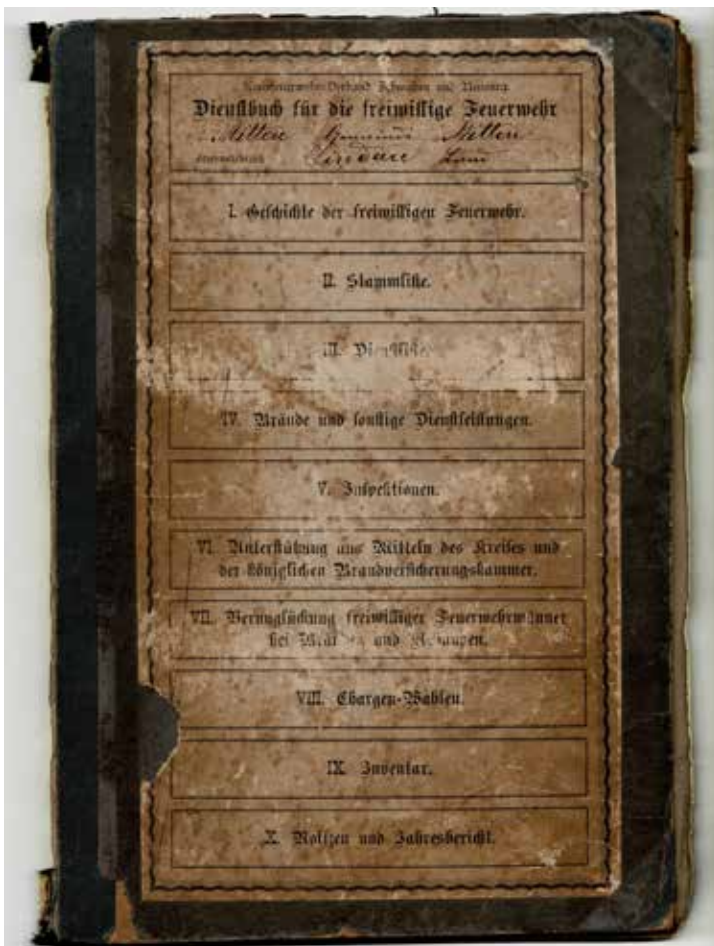 Dienstbuch für die freiwillige Feuerwehr
Mitten Gemeinde Mitten
Lindau Land
I. Geschichte der freiwilligen Feuerwehr.
II. Stammliste.
III. Dienstliste.
IV. Brände und sonstige Dienstleistungen.
V. Inspektionen.
VI. Unterstützung aus Mitteln des Kreises und
der königlichen Brandversicherungskammer.
VII. Verunglückung freiwilliger Feuerwehrmänner
bei und
VIII. Chargen-Wahlen.
IX. Inventar.
X. Notizen und Jahresbericht.